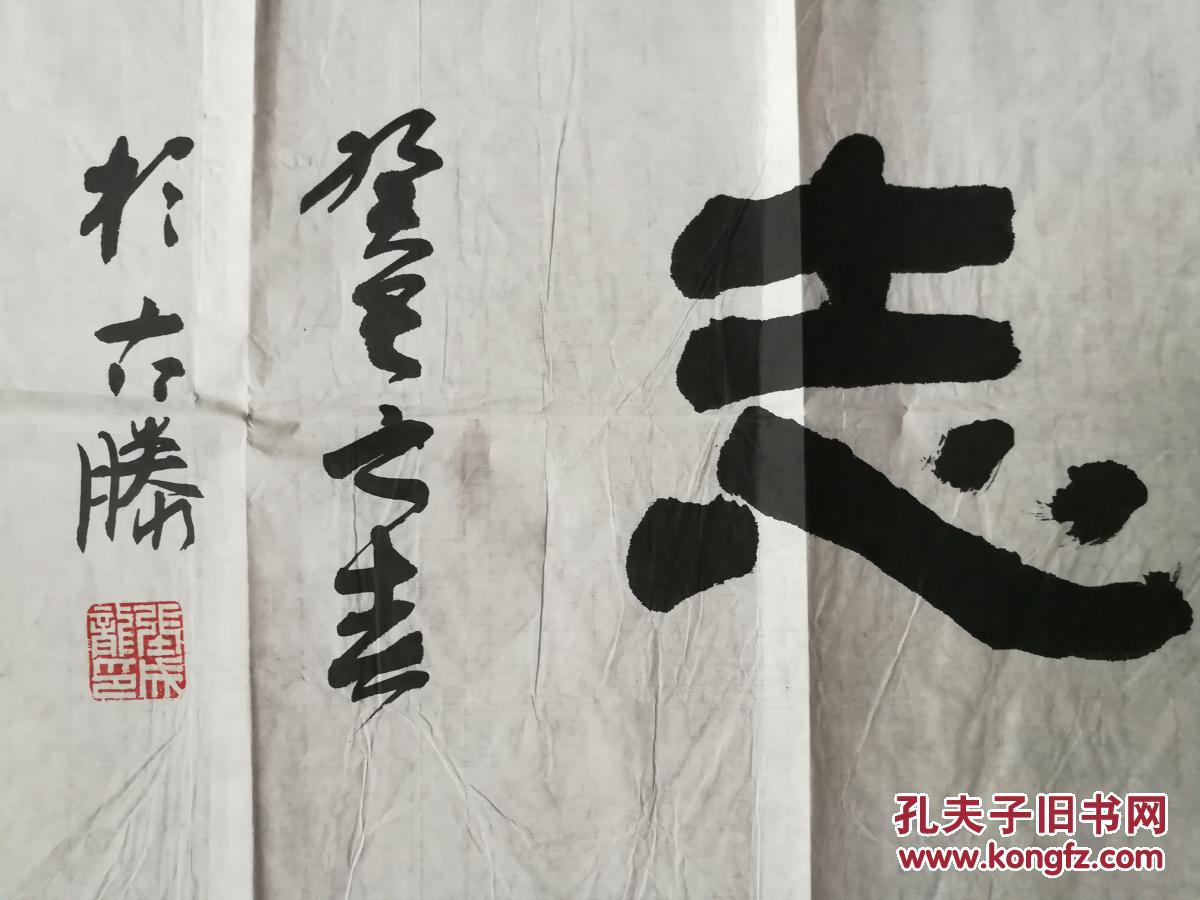 志
癸之春
於古滕
張成龍印
孔夫子旧书网
www.kongfz.com